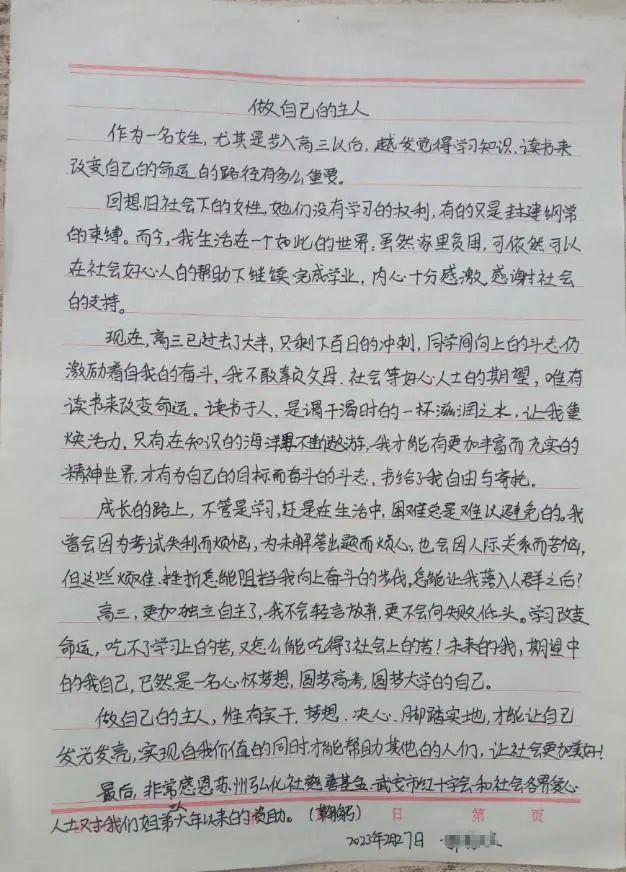 做自己的主人
作为一名女生,尤其是步入高三以后,越发觉得学习知识、读书来
改变自己的命运的路径有多么重要。
回想旧社会下的女性,她们没有学习的权利,有的只是封建纲常
的束缚。而今,我生活在一个如此的世界:虽然家里贫困,可依然可以
在社会好心人的帮助下继续完成学业,内心十分感激,感谢社会
的支持。
现在,高三已过去了大半,只剩下百日的冲刺,同学间向上的斗志仍
激励着自我的奋斗,我不敢辜负父母、社会等好心人士的期望,唯有
读书来改变命运。读书于人,是调干渴时的一杯滋润之水,让我重
焕活力,只有在知识的海洋里不断遨游,我才能有更加丰富而充实的
精神世界,才有为自己的目标而奋斗的斗志,书给了我自由与寄托。
成长的路上,不管是学习,还是在生活中,困难总是难以避免的。我
曾会因为考试失利而烦恼,为未解答出题而烦心,也会因人际关系而苦恼,
但这些烦难、挫折怎能阻挡我向上奋斗的步伐,怎能让我落入人群之后?
高三,更加独立自主了,我不会轻言放弃,更不会向失败低头。学习改变
命运,吃不了学习上的苦,又怎么能吃得了社会上的苦!未来的我,期望中
的我自己,已然是一名心怀梦想,圆梦高考,圆梦大学的自己。
做自己的主人,惟有实干,梦想、决心、脚踏实地,才能让自己
发光发亮,实现自我价值的同时才能帮助其他的人们,让社会更加美好!
最后,非常感恩苏州弘化社慈善基金、武安市红十字会和社会各界爱心
人士对我们姐弟三人六年以来的资助。(鞠躬)
日 第 页
2023年2月27日